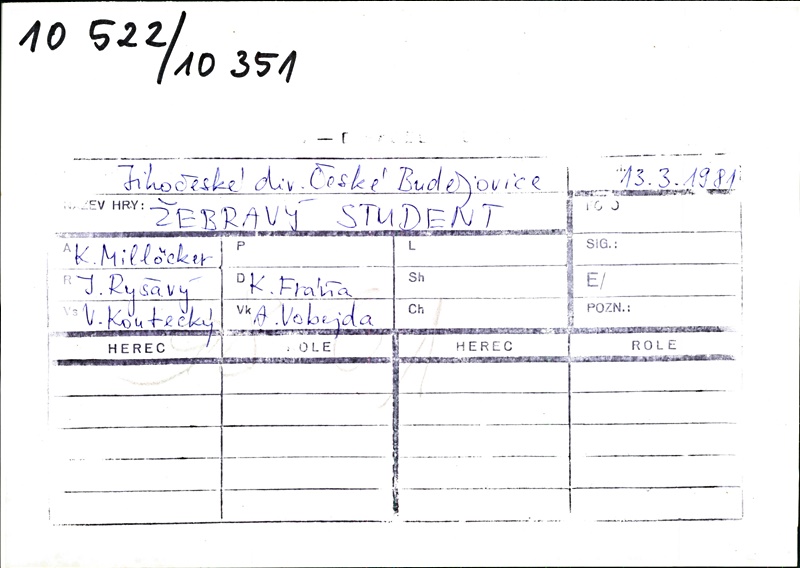 10 522/10 351
Jihočeské div. České Budějovice 13.3.1981
NÁZEV HRY: ŽEBRAVÝ STUDENT
A K. Millöcker P L SIG.:
R J. Ryšávý D Sh E/
Vs V. Koutecký Vk A. Vobejda Ch POZN.:
HEREC ROLE HEREC ROLE